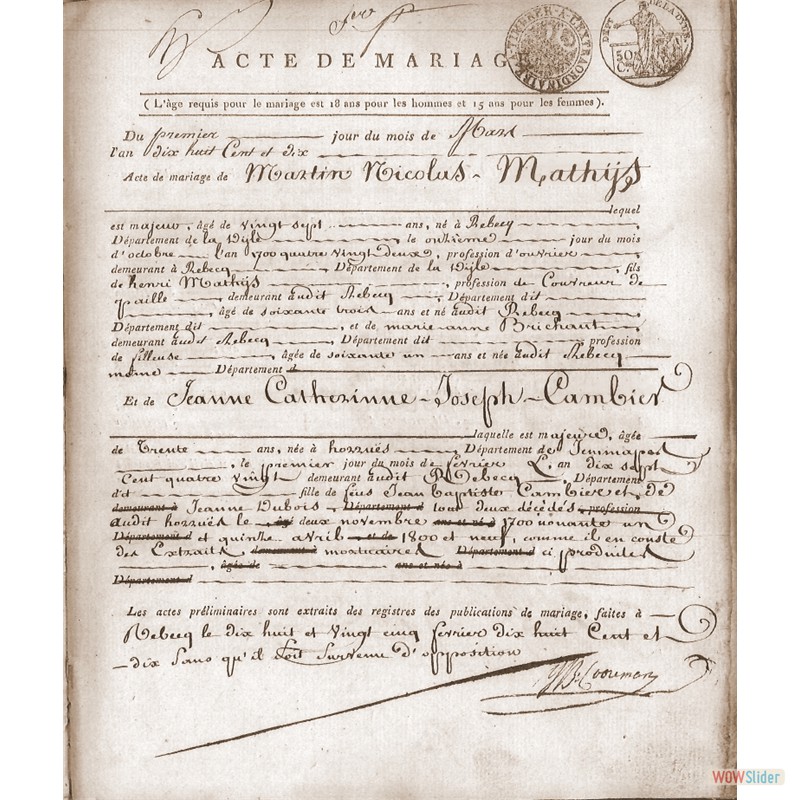 ACTE DE MARIAGE
TIMBRER A L'EXTRAORDINAIRE
DEPT DE LA DYLE
50
C.
( L'âge requis pour le mariage est 18 ans pour les hommes et 15 ans pour les femmes ).
Du premier jour du mois de Mars
l'an dix huit Cent et dix
Acte de mariage de Martin Nicolas Mathijs
lequel
est majeur, âgé de vingt sept ans, né à Rebecq
Département de la Dijle, le onzième jour du mois
d'octobre l'an 1700 quatre vingt deux, profession d'ouvrier
demeurant à Rebecq, Département de la Dijle, fils
de henri Mathijs, profession de Couvreur de
paille, demeurant audit Rebecq, Département dit
, âgé de soixante trois ans et né audit Rebecq
Département dit, et de marie anne Brichant
demeurant audit Rebecq Département dit profession
de fileuse, âgée de soixante un ans et née audit Rebecq
même Département d
Et de Jeanne Catherinne Joseph Cambier
laquelle est majeure, âgée
de Trente ans, née à hozzuës Département de Jemmapes
, le premier jour du mois de fevrier L'an dix sept
Cent quatre vingt demeurant audit Rebecq, Département
d'it fille de feus Jean Baptiste Cambier et de
demeurant à Jeanne Dubois Département d tous deux décédés profession
audit hozzuës le âgé deux novembre ans et né à 1700 nonante un
Département d et quinze avril et de 1800 et neuf, comme il en conste
des Extraits demeurant à mortuaires Département d ci produits
, âgée de ans et née à
Département d
Les actes préliminaires sont extraits des registres des publications de mariage, faites à
Rebecq le dix huit et vingt cinq fevrier dix huit Cent et
dix sans qu'il soit survenu d'opposition
WOWSlider